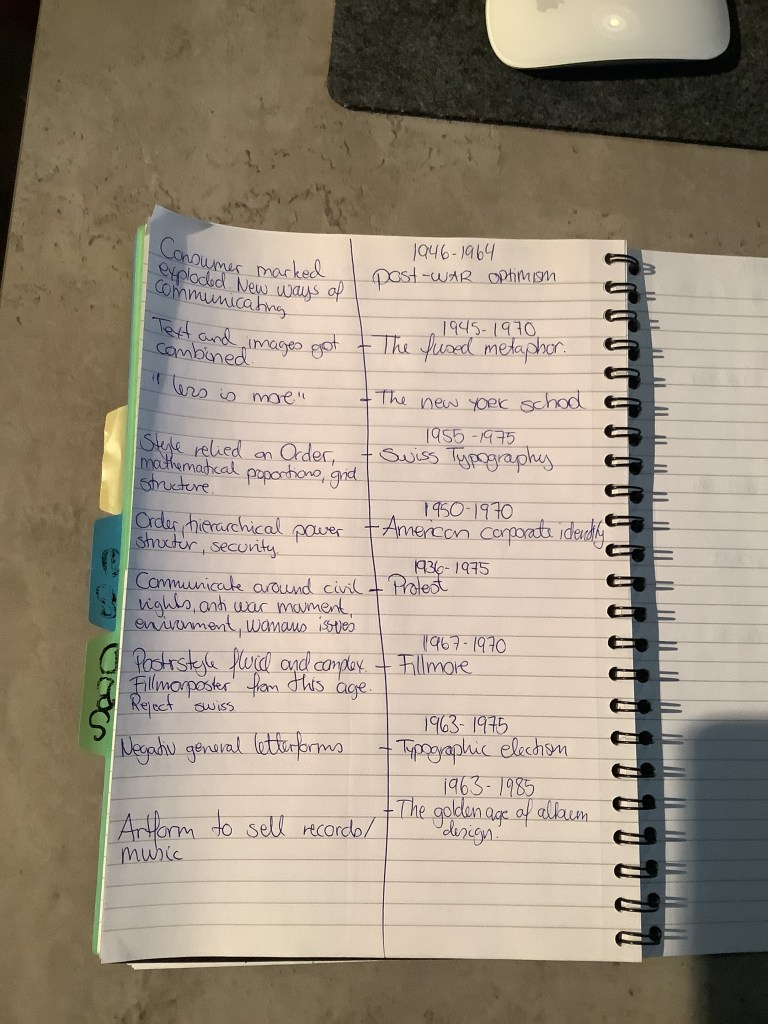 1946-1964
Consumer marked
exploded New ways of
communicating
post-WAR optimism
1945-1970
Text and images got
combined.
The fused metaphor.
"less is more"
The new york school
1955-1975
Style relied on Order,
mathematical poportions, grid
structure.
Swiss Typography
1950-1970
Order, hierarchical power
structur, security.
American corporate identify
1936-1975
Communicate around civil
rights, anti war movment,
environment, womans issues
Protest
1967-1970
style fluid and complex.
Fillmorposter from this age.
Reject swiss
Fillmore
1963-1975
Negativ general letterforms
Typographic electism
1963-1985
The golden age of album
design.
Artform to sell records/
music